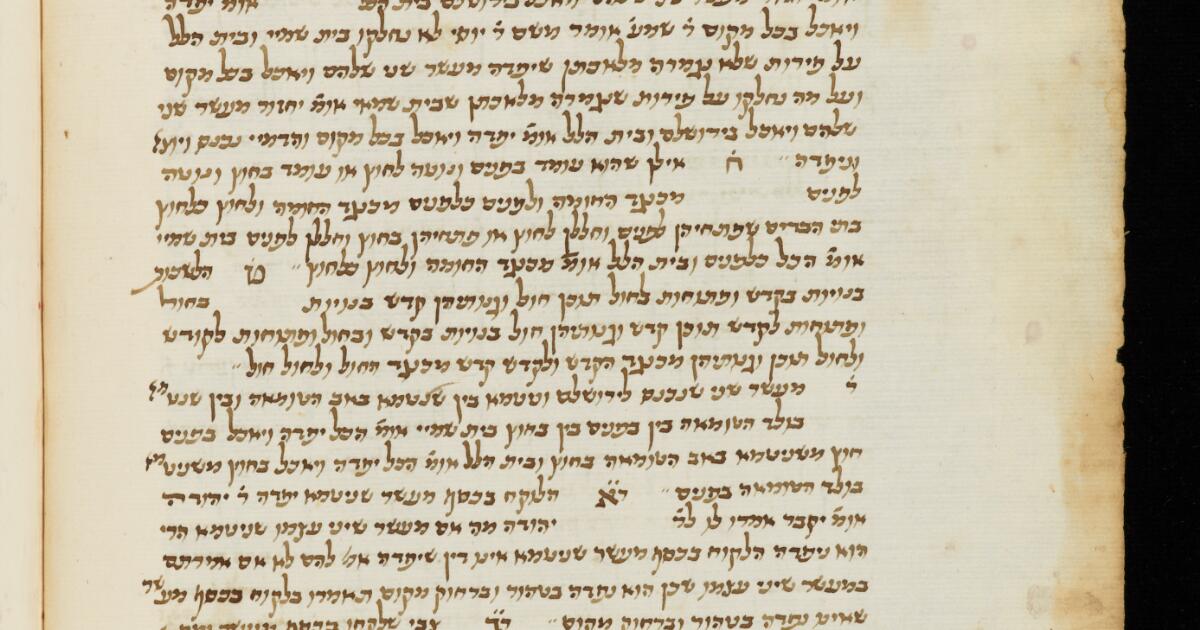 ויאכל בכל מקום ר׳ שמע׳ אומר משם ר׳ יוסי לא נחלקו בית שמיי ובית הלל
על פירות שלא נגמרה מלאכתן שיפדה מעשר שני שלהם ויאכל בכל מקום
ועל מה נחלקו על פירות שנגמרה מלאכתן שבית שמאי אומ׳ יחזור מעשר שני
שלהם ויאכל בירושלם ובית הלל אומ׳ יפדה ויאכל בכל מקום והדמיי נכנס ויוצ׳
וניפדה ״ ח אילן שהוא עומד בפנים ונוטה לחוץ או עומד בחוץ ונוטה
לפנים מכנגד החומה ולפנים כלפנים מכנגד החומה ולחוץ כלחוץ
בתי הבדים שפתחיהן לפנים וחללן לחוץ או פתחיהן בחוץ וחללן לפנים בית שמיי
אומ׳ הכל כלפנים ובית הלל אומ׳ מכנגד החומה ולחוץ כלחוץ ״ ט הלשכות
בנויות בקדש ופתוחות בחול תוכן חול וגגותיהן קדש בנויות בחול
ופתוחות לקדש תוכן קדש וגגותיהן חול בנויות בקדש ובחול ופתוחות לקודש
ולחול תוכן וגגותיהן מכנגד הקדש ולקדש קדש מכנגד החול ולחול חול ״
י מעשר שני שנכנס לירושלם וטמא בין שנטמא באב הטומאה ובין שנט׳
בולד הטומאה בין בפנים בין בחוץ בית שמיי אומ׳ הכל יפדה ויאכל בפנים
חוץ משניטמא באב הטומאה בחוץ ובית הלל אומ׳ הכל יפדה ויאכל בחוץ משניט׳
בולד הטומאה בפנים ״ יא הלוקח בכסף מעשר שניטמא יפדה ר׳ יהודה
אומ׳ יקבר אמרו לו לר׳ יהודה מה אם מעשר שיני עצמו שניטמא הרי
הוא ניפדה הלקוח בכסף מעשר שניטמא אינו דין שיפדה אמ׳ להם לא אם אמרתם
במעשר שיני עצמו שכן הוא נפדה בטהור וברחוק מקום תאמרו בלקוח בכסף מעשר
שאינו נפדה בטהור וברחוק מקום ״ יב צבי שלקחו בכסף